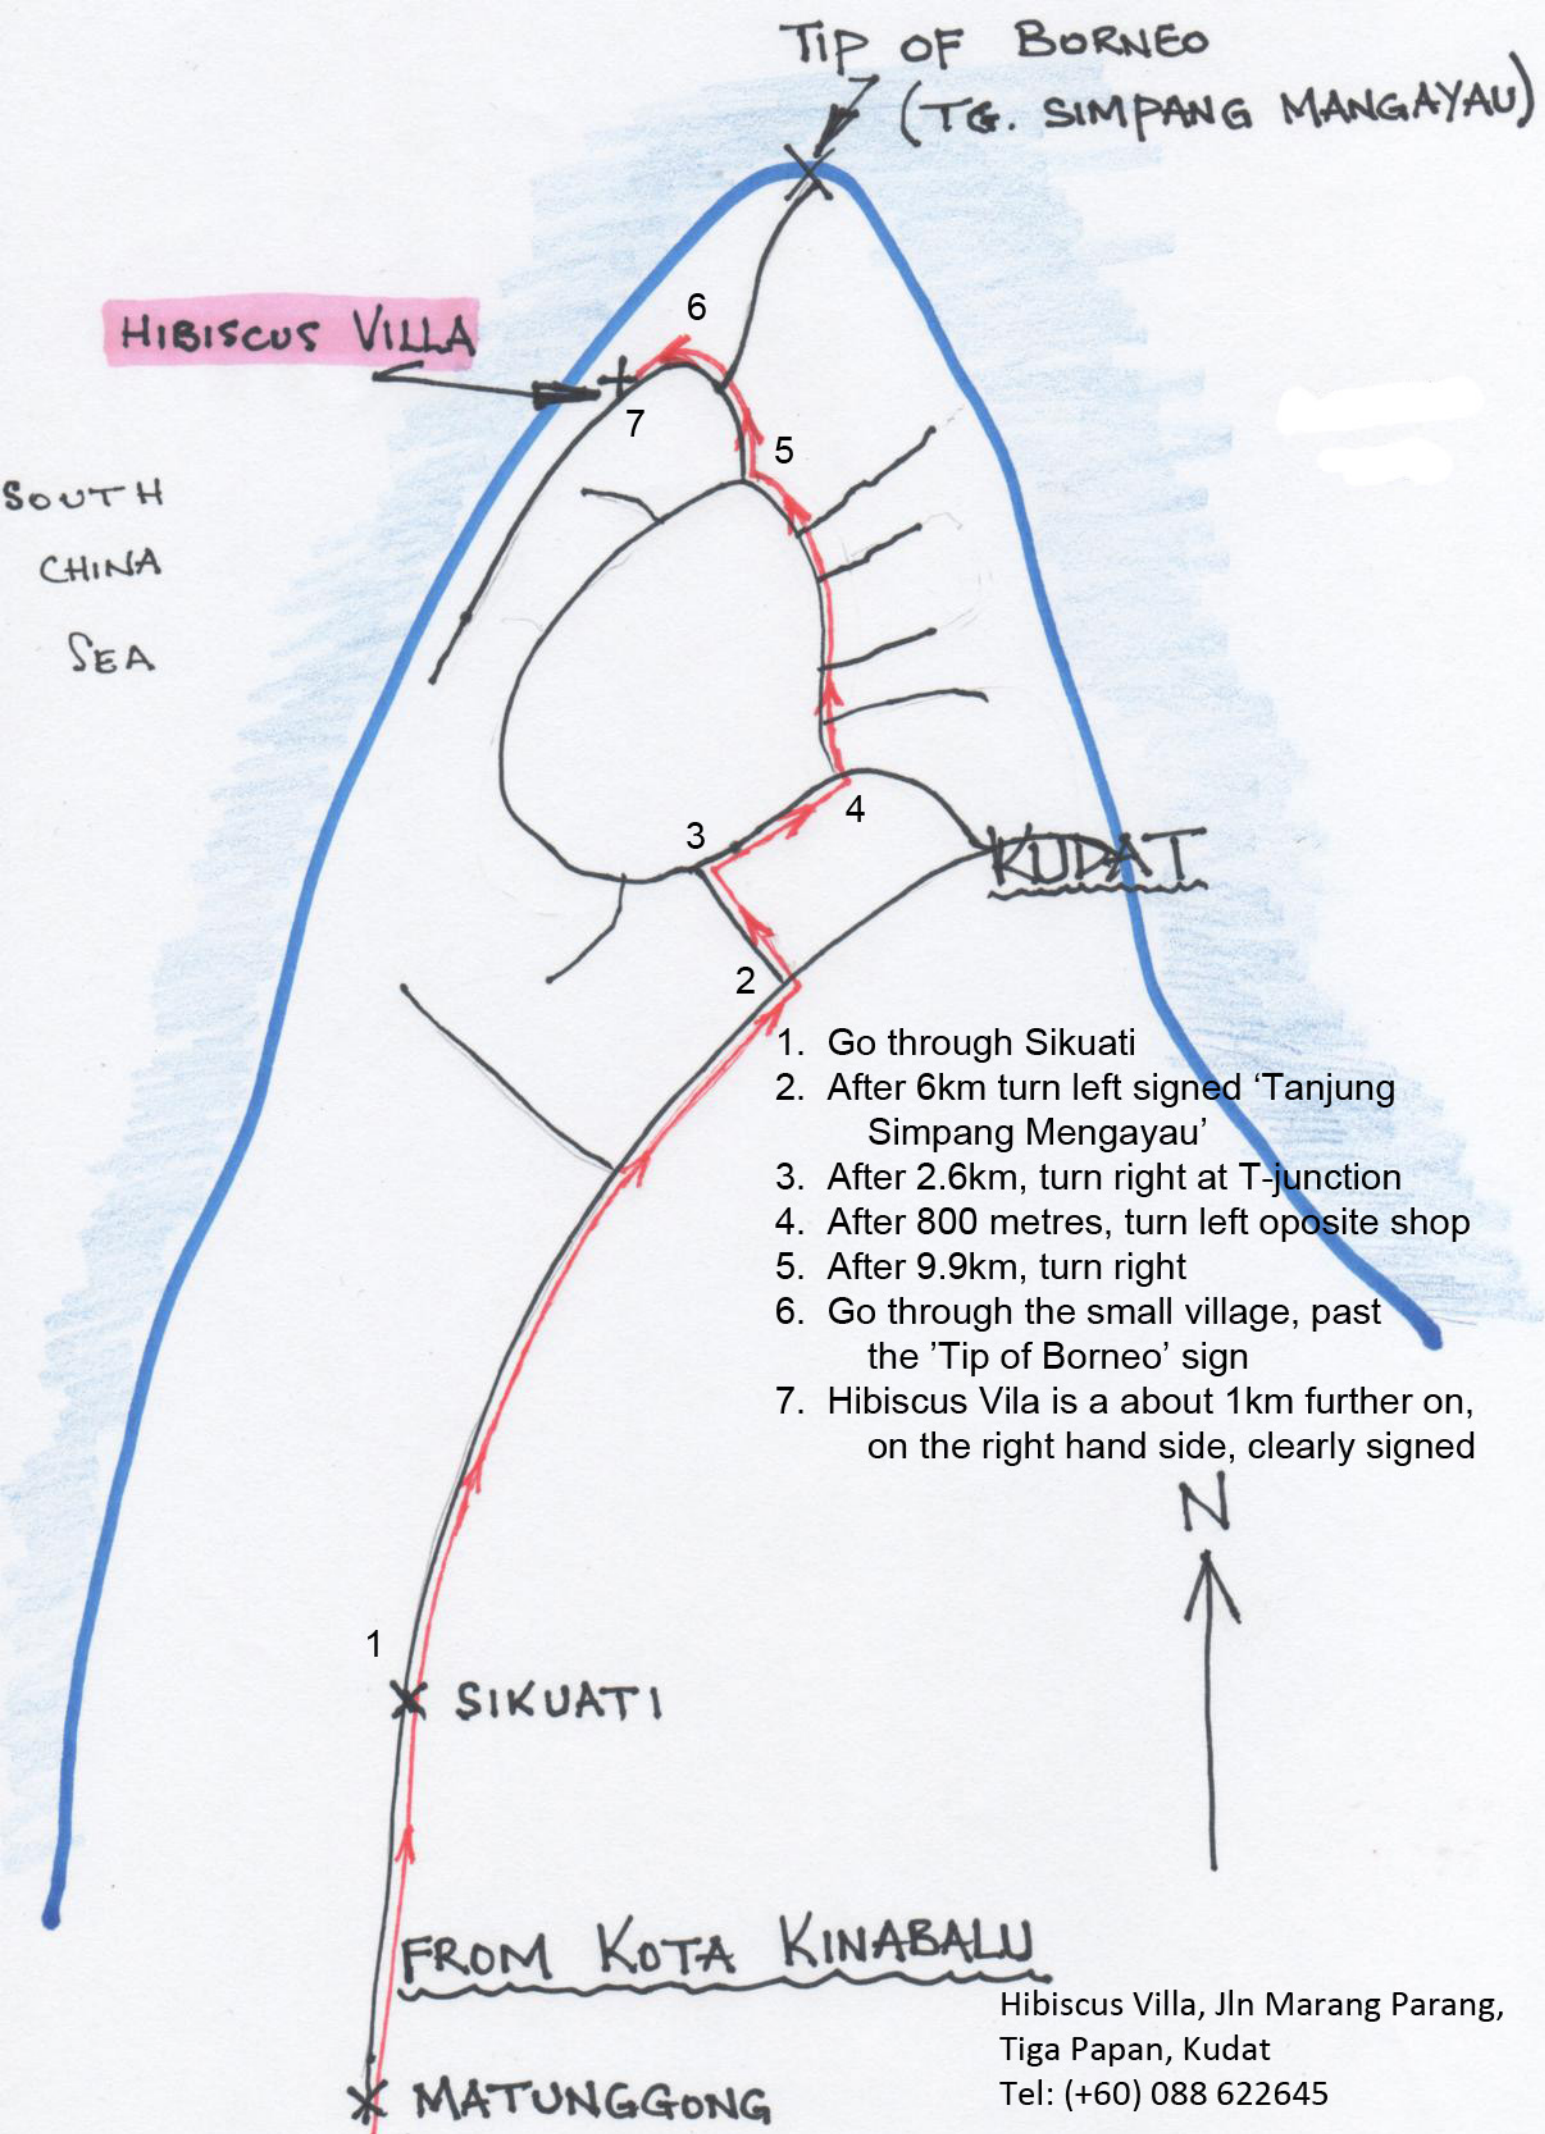 TIP OF BORNEO
(TG. SIMPANG MANGAYAU)
HIBISCUS VILLA
6
7
5
SOUTH
CHINA
SEA
4
3
KUDAT
2
1. Go through Sikuati
2. After 6km turn left signed ‘Tanjung
Simpang Mengayau’
3. After 2.6km, turn right at T-junction
4. After 800 metres, turn left oposite shop
5. After 9.9km, turn right
6. Go through the small village, past
the ’Tip of Borneo’ sign
7. Hibiscus Vila is a about 1km further on,
on the right hand side, clearly signed
N
1
SIKUATI
FROM KOTA KINABALU
Hibiscus Villa, Jln Marang Parang,
Tiga Papan, Kudat
Tel: (+60) 088 622645
MATUNGGONG